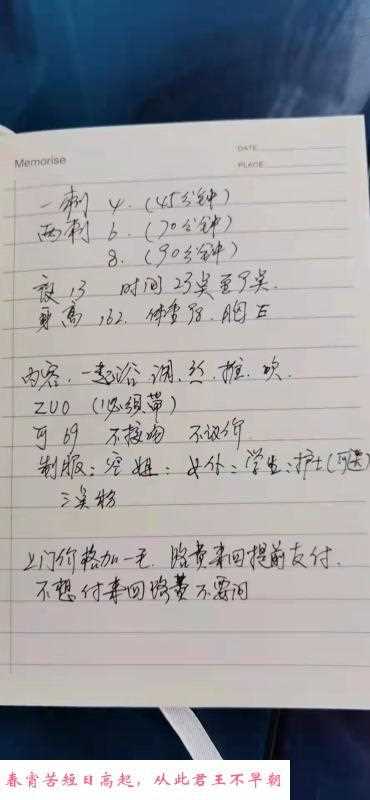 Memorise
DATE
PLACE
一刺 4.(45分钟)
两刺 6.(70分钟)
8.(90分钟)
夜13 时间23点至9点.
身高162. 体重98. 胸E
内容.一起浴.调.丝.推.吹.
ZUO(必须带)
可69 不接吻 不议价
制服:空姐:女仆:学生:护士(可选)
上门价格加一毛.路费来回提前支付.
不想付来回路费不要问
春宵苦短日高起,从此君王不早朝